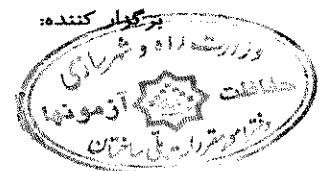 برگزار کننده:
وزارت راه و شهرسازی
حفاظت آزمونها
دفتر امور مقررات ملی ساختمان